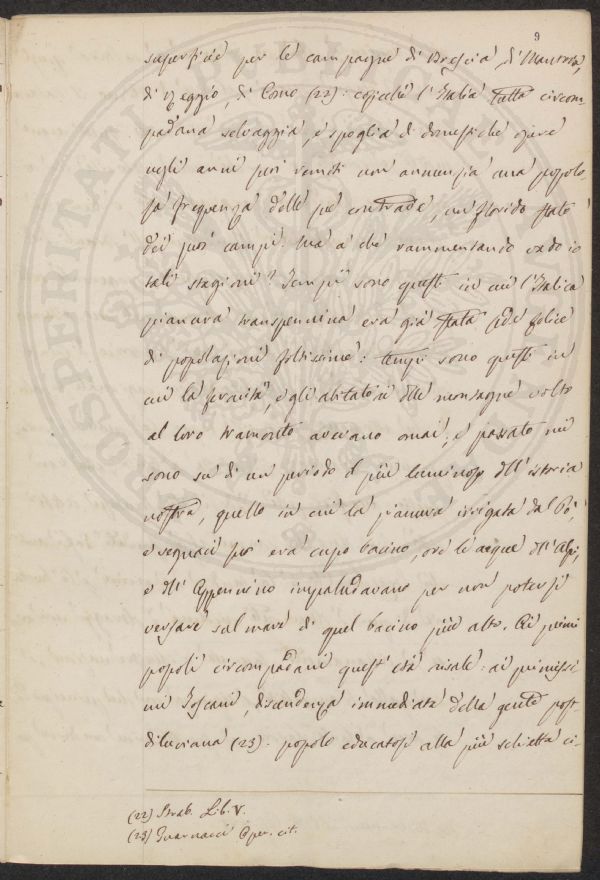 9
superficie per le campagne di Brescia, di Mantova,
di Reggio, di Como (22): cosicchè l'Italia tutta circom-
padana selvaggia, e spoglia di domestiche opere
negli anni più remoti non annunzia una popolo-
sa frequenza delle sue contrade, un florido stato
dei suoi campi. Ma a che rammentando vado io
tali stagioni? Tempi sono questi in cui l'Italica
pianura transpennina era già stata sede felice
di popolazioni foltissime: tempi sono questi in
cui la feracità, e gli abitatori delle montagne volto
al loro tramonto aveano omai; e passato
sono su di un periodo il più luminoso dell'istoria
nostra, quello in cui la pianura irrigata dal Pò,
e seguaci suoi era cupo bacino, ove le acque dell'Alpi,
e dell'Appennino impaludavano per non potersi
versare sul mare di quel bacino più alto. Ai primi
popoli circompadani quest'età risale: ai primissi-
mi Toscani, discendenza immediata della gente post-
diluviana (23). popolo educatosi alla più schietta ci-
(22) Strab. Lib. V.
(23) Guarnacci Oper. cit.
PROSPERITATI PUBLICAE